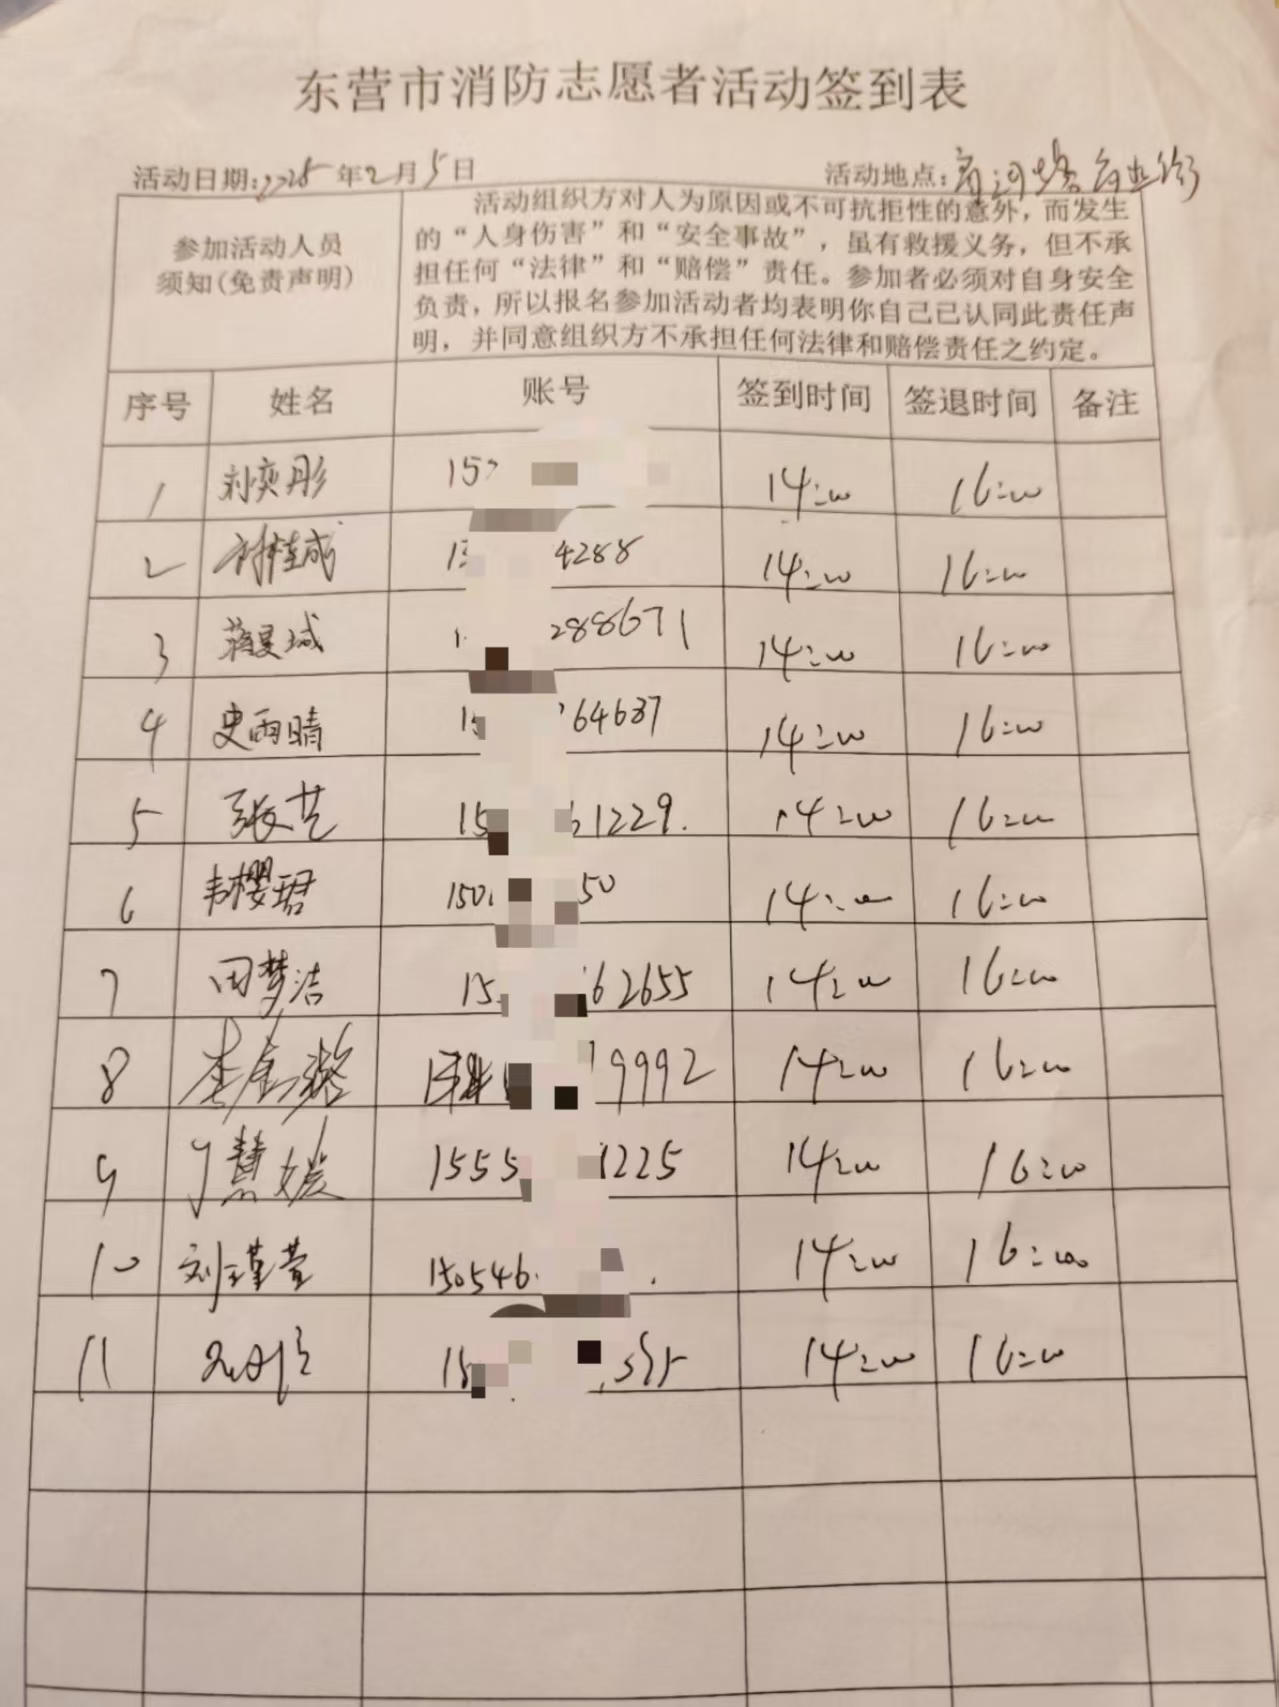 东营市消防志愿者活动签到表
活动日期:2025年2月5日 活动地点:
参加活动人员
须知(免责声明)
活动组织方对人为原因或不可抗拒性的意外，而发生
的“人身伤害”和“安全事故”，虽有救援义务，但不承
担任何“法律”和“赔偿”责任。参加者必须对自身安全
负责，所以报名参加活动者均表明你自己已认同此责任声
明，并同意组织方不承担任何法律和赔偿责任之约定。
序号 姓名 账号 签到时间 签退时间 备注
1 刘奕彤 157 14:00 16:00
2 4288 14:00 16:00
3 288671 14:00 16:00
4 史雨晴 15 64637 14:00 16:00
5 张艺 15 61229. 14:00 16:00
6 韦樱珺 150 50 14:00 16:00
7 田梦洁 15 62655 14:00 16:00
8 李金璐 19992 14:00 16:00
9 丁慧媛 1555 1225 14:00 16:00
10 刘瑾萱 150546 14:00 16:00
11 14:00 16:00